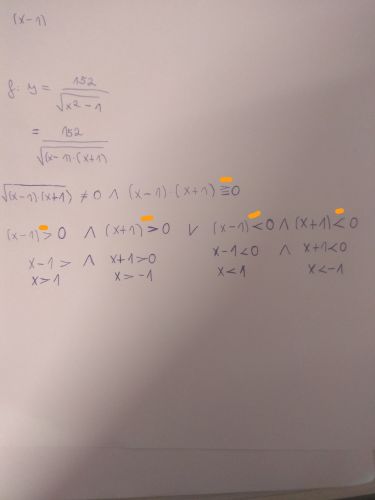 (x-1)
f: y = 152 / √(x² - 1)
= 152 / √((x-1)·(x+1))
√((x-1)·(x+1)) ≠ 0 ∧ (x-1)·(x+1) ≧ 0
(x-1) > 0 ∧ (x+1) > 0 ∨ (x-1) < 0 ∧ (x+1) < 0
x-1 > ∧ x+1>0 x-1<0 ∧ x+1<0
x>1 x>-1 x<1 x<-1